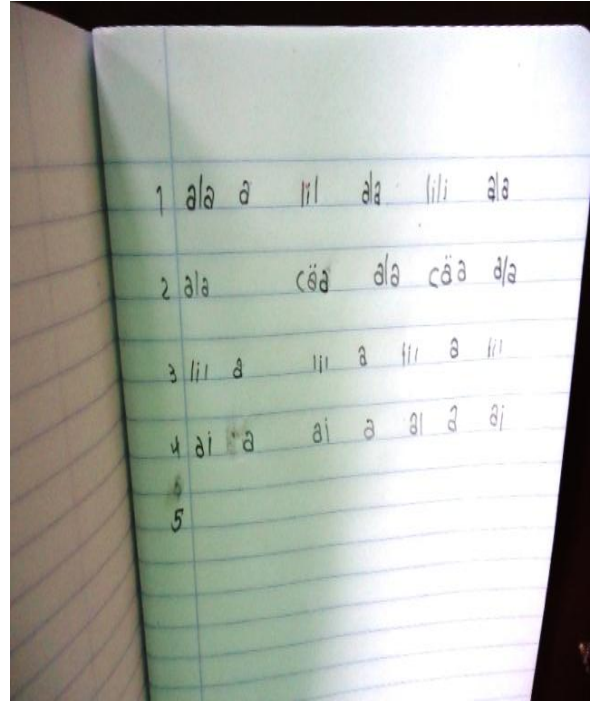 1 ala a lil ala lili ala
2 ala cäa ala cäa ala
3 lil a lil a lil a lil
4 ai a ai a al a ai
5